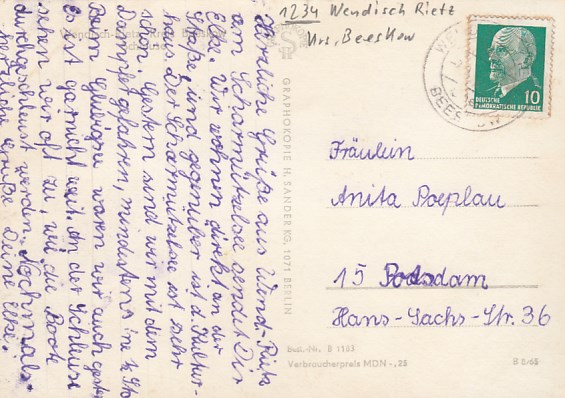 1234 Wendisch Rietz
Krs. Beeskow
Herzliche Grüße aus Wend.-Rietz
am Scharmützelsee sendet Dir
Else. Wir wohnen direkt an der
Straße und gegenüber ist d. Kultur-
haus. Der Scharmützelsee ist sehr
schön. Gestern sind wir mit dem
Dampfer gefahren, mindestens 1½ Std
Beim waren wir auch gestern
Es ist garnicht weit. An der Schleuse
sehen wir oft zu, wie die Boote
durchgeschleust werden. Nochmals
herzliche Grüße Deine Else.
GRAPHOKOPIE H. SANDER KG, 1071 BERLIN
DEUTSCHE
DEMOKRATISCHE REPUBLIK
10
BEESKOW
Fräulein
Anita Poeplau
15 Potsdam
Hans-Sachs-Str. 36
Best.-Nr. B 1163
Verbraucherpreis MDN -,25